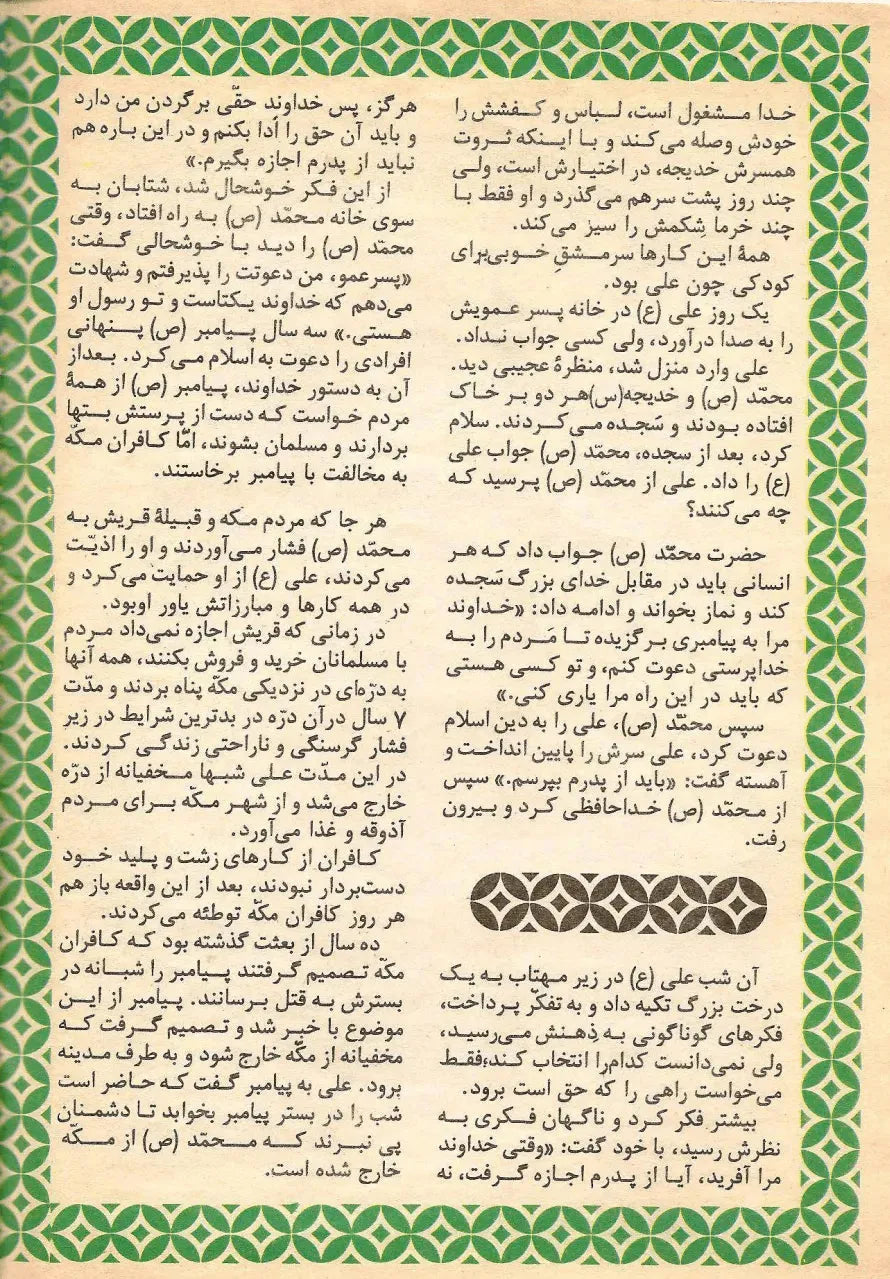 خدا مشغول است، لباس و کفشش را
خودش وصله می‌کند و با اینکه ثروت
همسرش خدیجه، در اختیارش است، ولی
چند روز پشت سرهم می‌گذرد و او فقط با
چند خرما شِکمش را سیز می‌کند.
همهٔ این کارها سرمشقِ خوبی‌برای
کودکی چون علی بود.
یک روز علی (ع) در خانه پسر عمویش
را به صدا درآورد، ولی کسی جواب نداد.
علی وارد منزل شد، منظرهٔ عجیبی دید.
محمّد (ص) و خدیجه(س)هر دو بر خاک
افتاده بودند و سَجده می‌کردند. سلام
کرد، بعد از سجده، محمّد (ص) جواب علی
(ع) را داد. علی از محمّد (ص) پرسید که
چه می‌کنند؟
حضرت محمّد (ص) جواب داد که هر
انسانی باید در مقابل خدای بزرگ سَجده
کند و نماز بخواند و ادامه داد: «خداوند
مرا به پیامبری برگزیده تا مَردم را به
خداپرستی دعوت کنم، و تو کسی هستی
که باید در این راه مرا یاری کنی.»
سپس محمّد (ص)، علی را به دین اسلام
دعوت کرد، علی سرش را پایین انداخت و
آهسته گفت: «باید از پدرم بپرسم.» سپس
از محمّد (ص) خداحافظی کرد و بیرون
رفت.
آن شب علی (ع) در زیر مهتاب به یک
درخت بزرگ تکیه داد و به تفکّر پرداخت،
فکرهای گوناگونی به ذِهنش می‌رسید،
ولی نمی‌دانست کدام‌را انتخاب کند؛فقط
می‌خواست راهی را که حق است برود.
بیشتر فکر کرد و ناگهان فکری به
نظرش رسید، با خود گفت: «وقتی خداوند
مرا آفرید، آیا از پدرم اجازه گرفت، نه
هرگز، پس خداوند حقّی برگردن من دارد
و باید آن حق را اَدا بکنم و در این باره هم
نباید از پدرم اجازه بگیرم.»
از این فکر خوشحال شد، شتابان به
سوی خانه محمّد (ص) به راه افتاد، وقتی
محمّد (ص) را دید با خوشحالی گفت:
«پسرعمو، من دعوتت را پذیرفتم و شهادت
می‌دهم که خداوند یکتاست و تو رسول او
هستی.» سه سال پیامبر (ص) پنهانی
افرادی را دعوت به اسلام می‌کرد. بعداز
آن به دستور خداوند، پیامبر (ص) از همهٔ
مردم خواست که دست از پرستش بتها
بردارند و مسلمان بشوند، امّا کافران مکّه
به مخالفت با پیامبر برخاستند.
هر جا که مردم مکه و قبیلهٔ قریش به
محمّد (ص) فشار می‌آوردند و او را اذیّت
می‌کردند، علی (ع) از او حمایت می‌کرد و
در همه کارها و مبارزاتش یاور اوبود.
در زمانی که قریش اجازه نمی‌داد مردم
با مسلمانان خرید و فروش بکنند، همه آنها
به درّه‌ای در نزدیکی مکّه پناه بردند و مدّت
۷ سال درآن درّه در بدترین شرایط در زیر
فشار گرسنگی و ناراحتی زندگی کردند.
در این مدّت علی شبها مخفیانه از درّه
خارج می‌شد و از شهر مکّه برای مردم
آذوقه و غذا می‌آورد.
کافران از کارهای زشت و پلید خود
دست‌بردار نبودند، بعد از این واقعه باز هم
هر روز کافران مکّه توطئه می‌کردند.
ده سال از بعثت گذشته بود که کافران
مکّه تصمیم گرفتند پیامبر را شبانه در
بسترش به قتل برسانند. پیامبر از این
موضوع با خبر شد و تصمیم گرفت که
مخفیانه از مکّه خارج شود و به طرف مدینه
برود. علی به پیامبر گفت که حاضر است
شب را در بستر پیامبر بخوابد تا دشمنان
پی نبرند که محمّد (ص) از مکّه
خارج شده است.